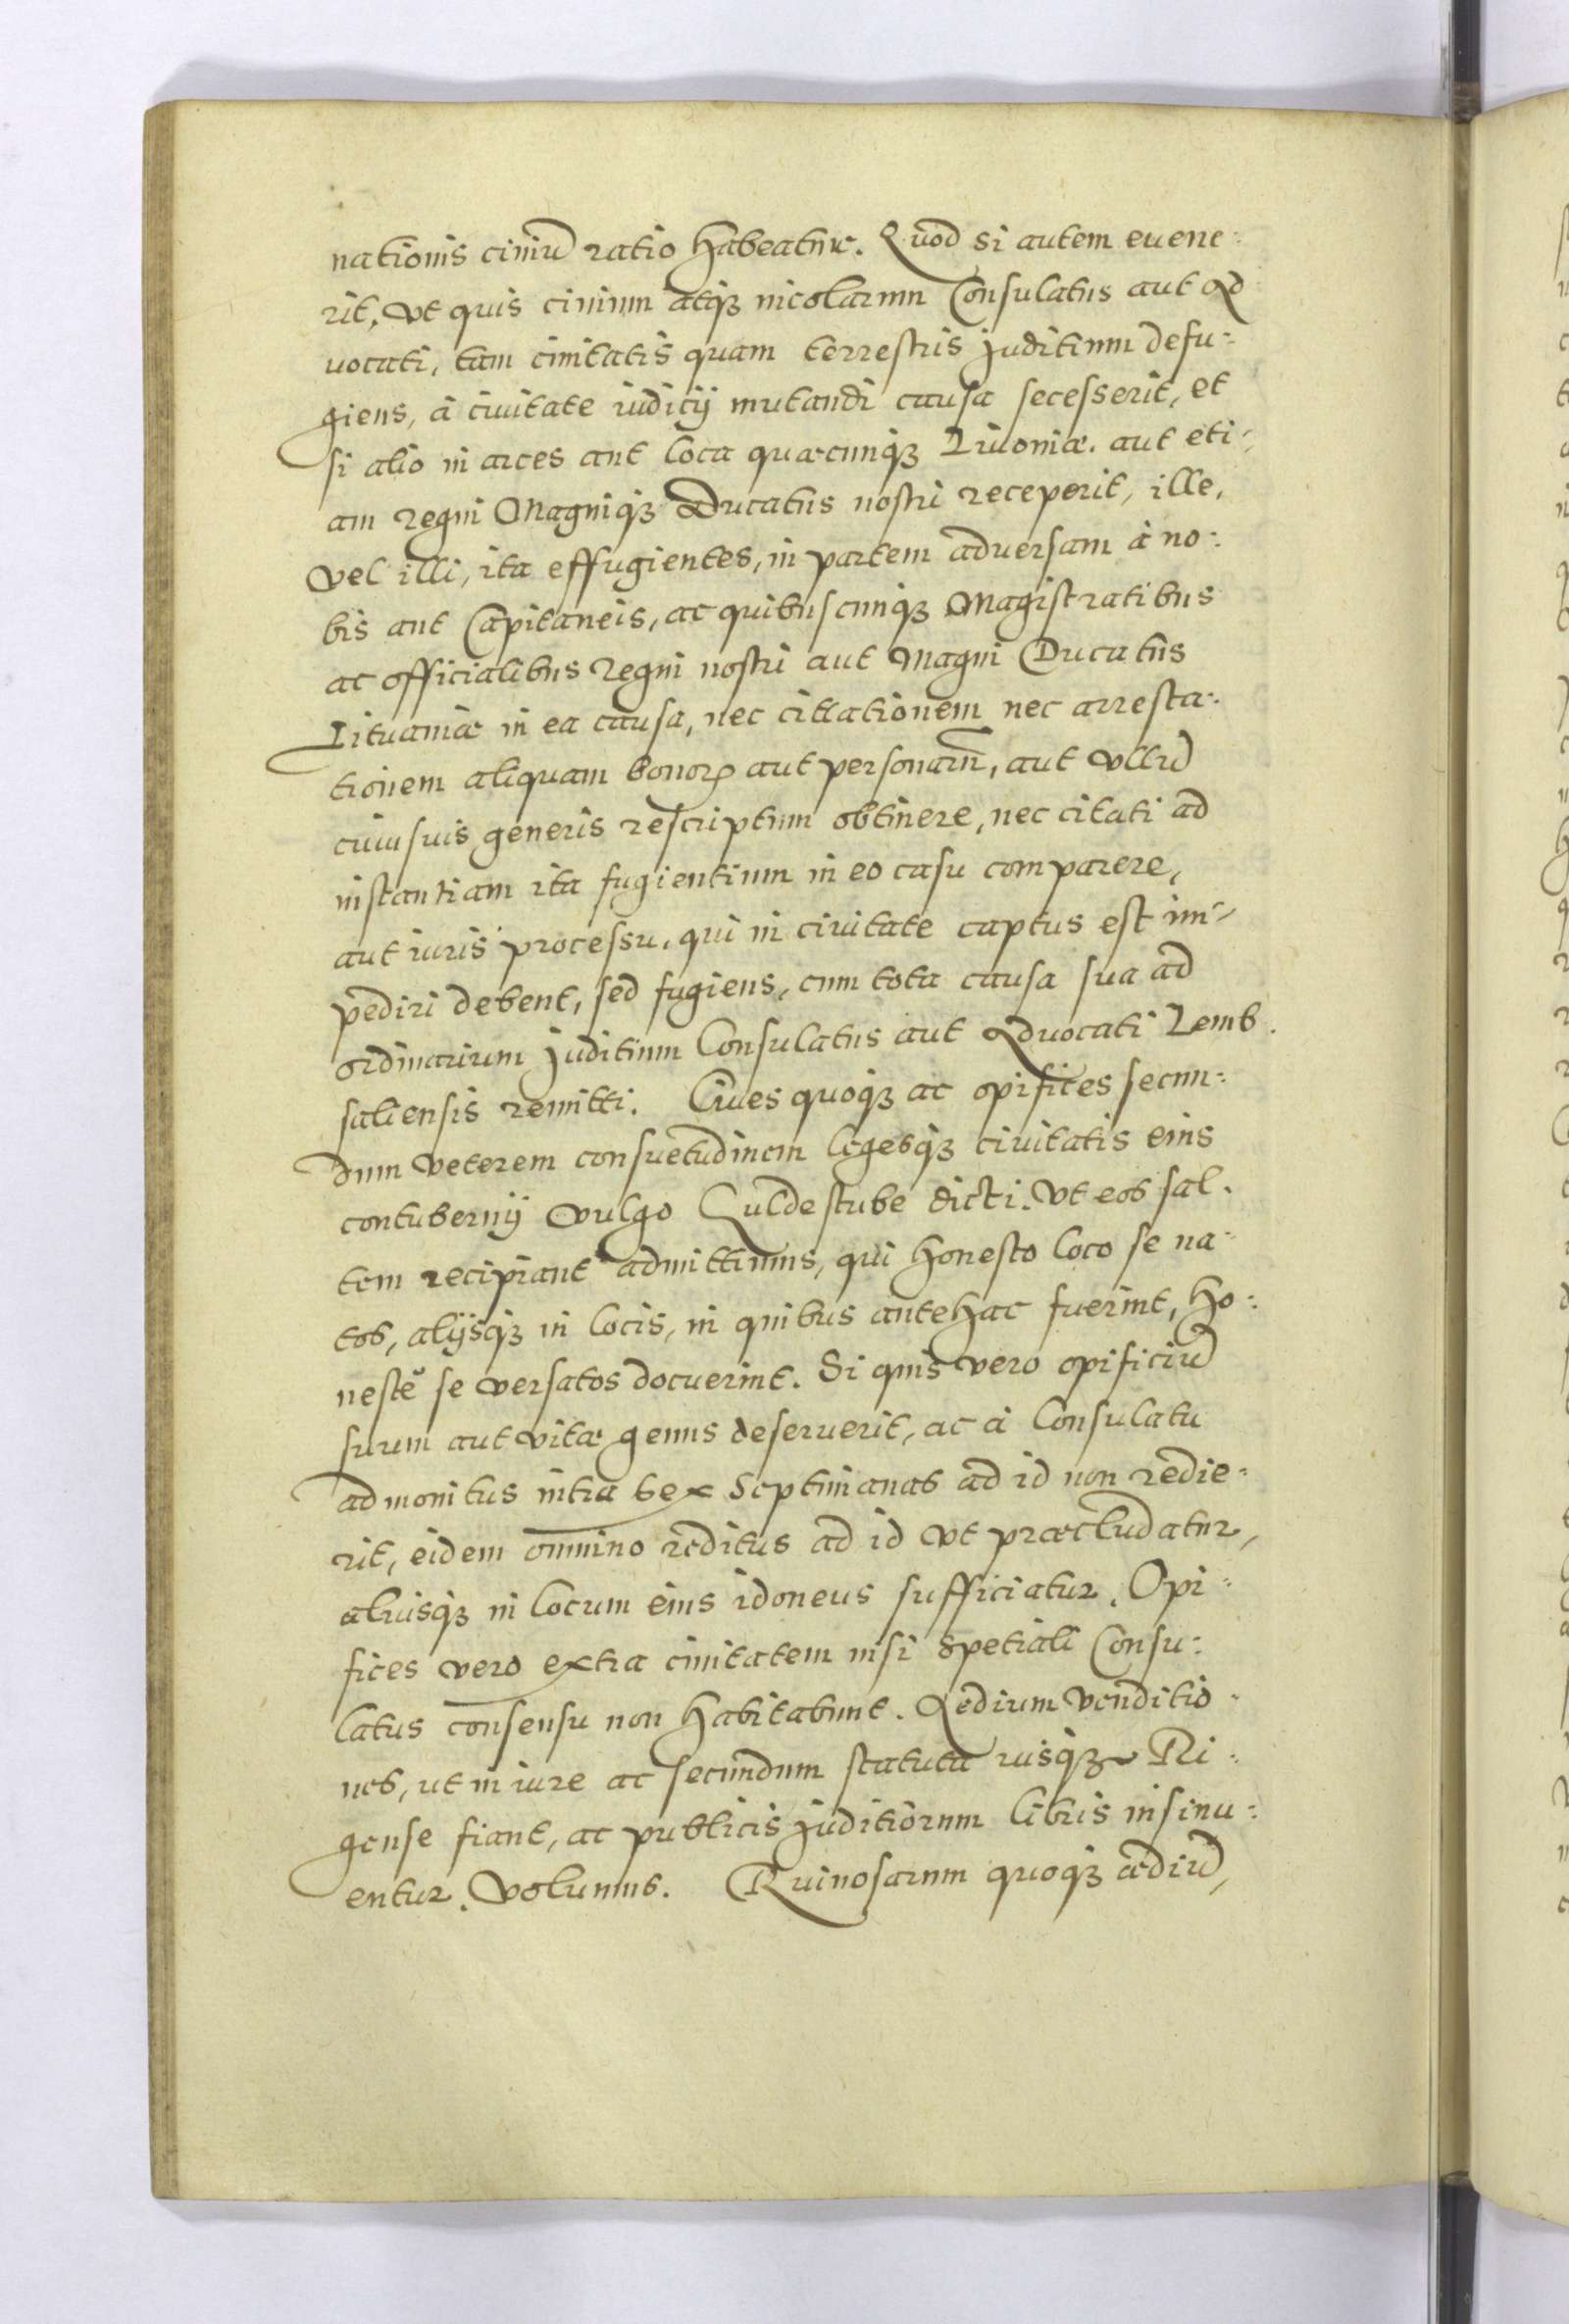 nationis ciuiũ ratio habeatur. Quod si autem euene:
rit, vt quis ciuium atq₃ incolarum Consulatus aut Ad
uocati, tam ciuitatis quam terrestris juditium defu:
giens, à ciuitate iudicij mutandi causa secesserit, et
si alio in arces aut loca quæcunq₃ Liuoniæ. aut eti:
am regni Magniq₃ Ducatus nostri receperit, ille,
vel illi, ita effugientes, in partem aduersam à no:
bis aut Capitaneis, ac quibuscunq₃ Magistratibus
ac officialibus Regni nostri aut Magni Ducatus
Lituaniæ in ea causa, nec cittationem nec arresta:
tionem aliquam bonoꝝ aut personarũ, aut vllũ
cuiusuis generis rescriptum obtinere, nec citati ad
instantiam ita fugientium in eo casu comparere,
aut iuris processu, qui in ciuitate captus est im:
pediri debent, sed fugiens, cum tota causa sua ad
ordinarium juditium Consulatus aut Aduocati Lemb.
saliensis remitti. Ciues quoq₃ ac opifices secun:
dum veterem consuetudinem legesq₃ ciuitatis eius
contubernij vulgo Guldestube dicti. vt eos sal.
tem recipiant admittimus, qui honesto loco se na:
tos, alijsq₃ in locis, in quibus antehac fuerint, ho:
nestè se versatos docuerint. Si quis vero opificiũ
suum aut vitæ genus deseruerit, ac à Consulatu
admonitus intra sex Septimanas ad id non redie:
rit, eidem omnino reditus ad id vt præcludatur,
aliusq₃ in locum eius idoneus sufficiatur. Opi:
fices vero extra ciuitatem nisi spetiali Consu:
latus consensu non habitabunt. Aedium venditio:
nes, ut in iure ac secundum statuta iusq₃ Ri:
gense fiant, ac publicis juditiorum libris insinu:
entur. volumus. Ruinosarum quoq₃ ædiũ,